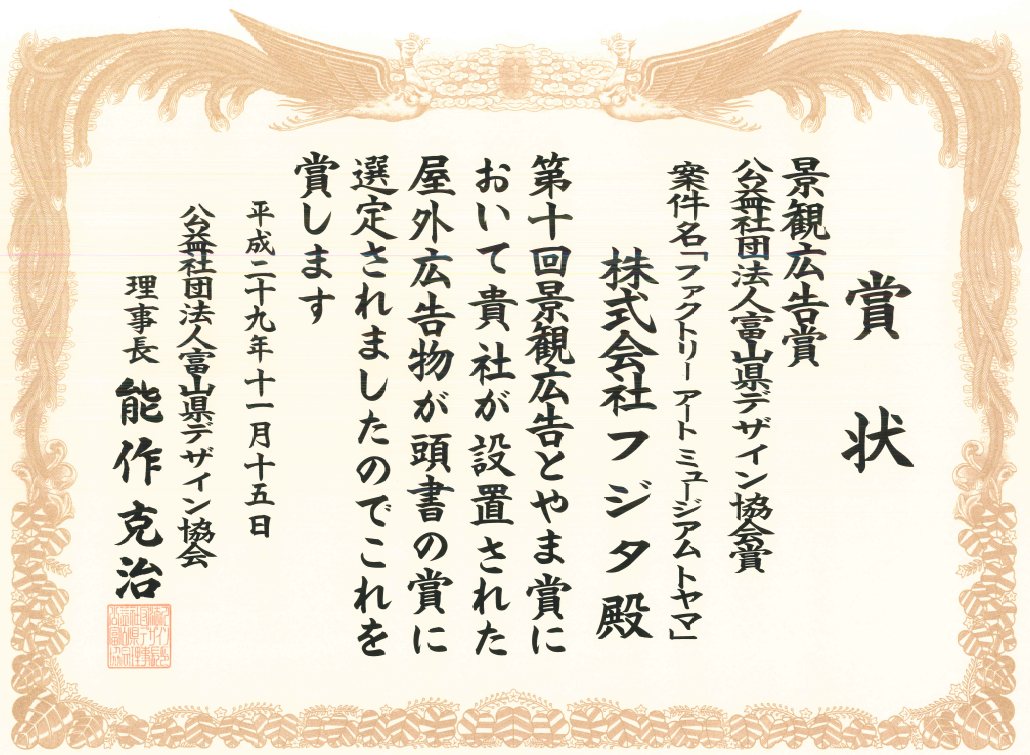 賞状
景観広告賞
公益社団法人富山県デザイン協会賞
案件名「ファクトリーアートミュージアムトヤマ」
株式会社フジタ殿
第十回景観広告とやま賞に
おいて貴社が設置された
屋外広告物が頭書の賞に
選定されましたのでこれを
賞します
平成二十九年十一月十五日
公益社団法人富山県デザイン協会
理事長 能作克治